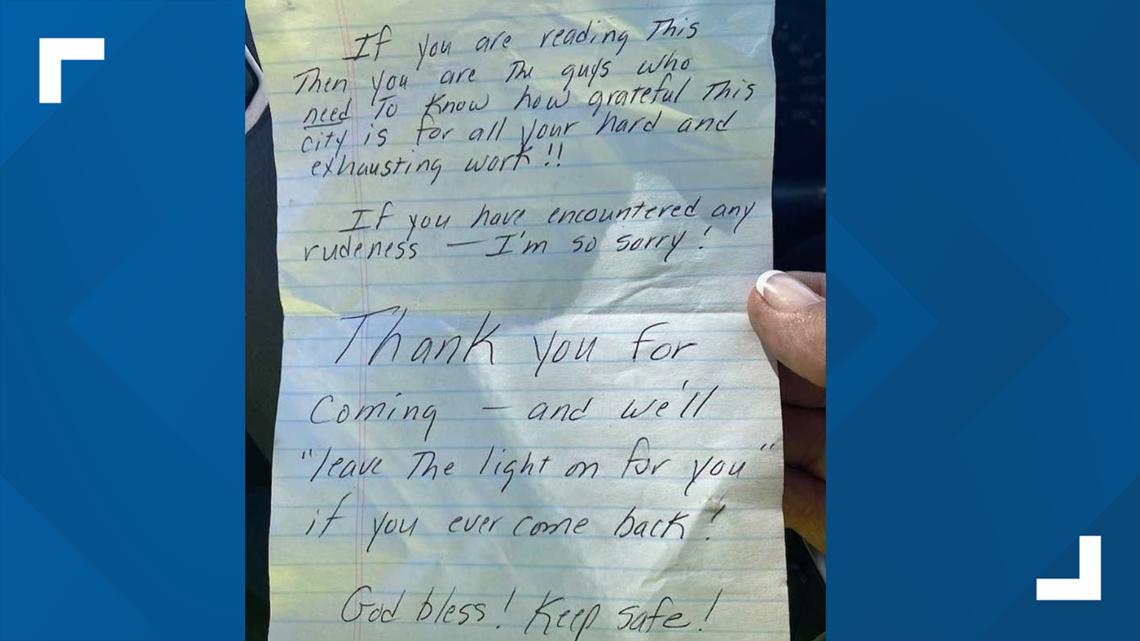 If you are reading This
Then you are The guys who
need To know how grateful This
city is for all your hard and
exhausting work!!
If you have encountered any
rudeness — I'm so sorry!
Thank you for
coming — and we'll
"leave The light on for you"
if you ever come back!
God bless! Keep safe!